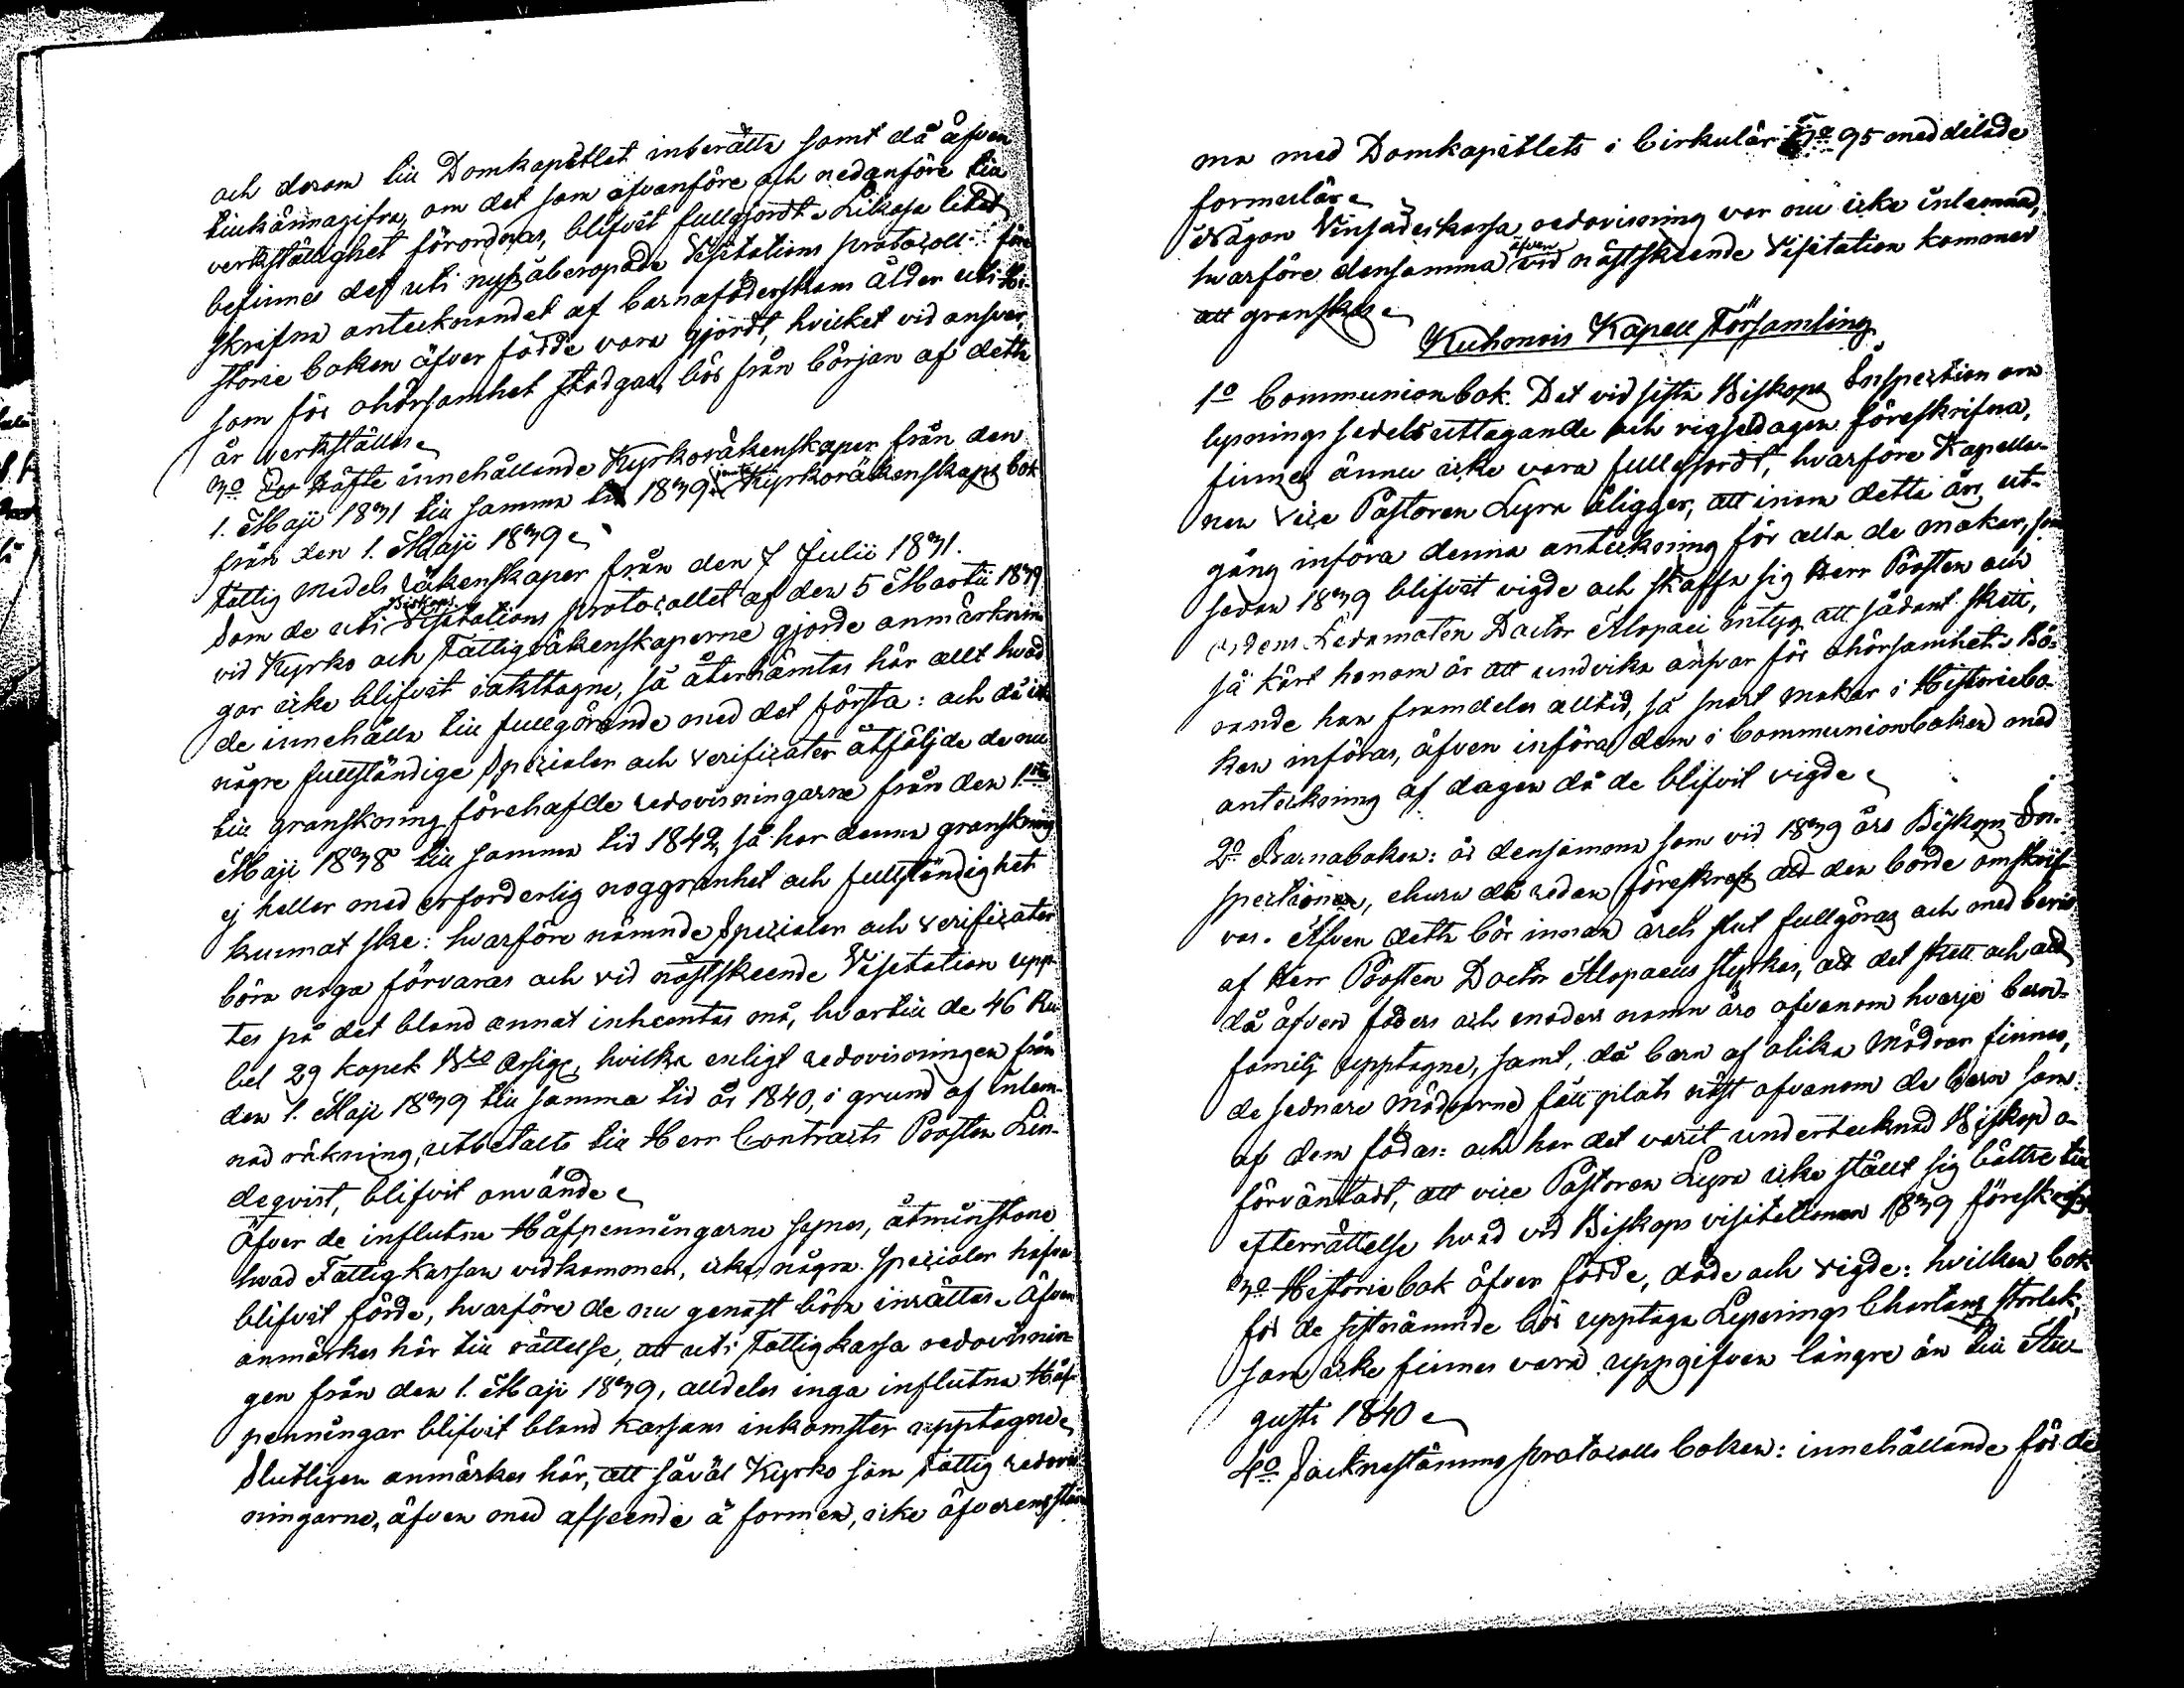 och derom till Domkapitlet inberätta samt då äfven
tillkännagifva, om det som ofvanföre och nedanföre till
verkställighet förordnas, blifvit fullgjordt. Likaså litet
befinnes det uti nyss åberopade Visitations protocoll före
skrifna antecknandet af barnaföderskans ålder uti Hi-
storie boken öfver födde vara gjordt, hvilket vid ansvar,
som för ohörsamhet stadgas, bör från början af detta
år verkställas.
3o Ett häfte innehållande Kyrkoräkenskaper från den
1. Maji 1831 till samma tid 1839. jemte Kyrkoräkenskaps bok
från den 1. Maji 1839.
Fattig medels räkenskaper från den 7 Julii 1831.
Som de uti Biskops Visitations protocollet af den 5 Martii 1839
vid Kyrko och Fattigräkenskaperne gjorde anmärknin-
gar icke blifvit iakttagne, så återhämtas här allt hvad
de innehålla till fullgörande med det första: och då icke
några fullständige Specialer och verificater åtföljde de nu
till granskning förehafde redovisningarne från den 1sta
Maji 1838 till samma tid 1842, så har denna granskning
ej heller med erforderlig noggranhet och fullständighet
kunnat ske: hvarföre nämnde Specialer och verificater
böra noga förvaras och vid nästskeende Visitation upp-
tes på det bland annat inhemtas må, hvartill de 46 Ru-
bel 29 kopek Bco Assign, hvilka enligt redovisningen från
den 1. Maji 1839 till samma tid år 1840, i grund af inlem-
nad räkning, utbetalts till Herr Contracts Prosten Lin-
deqvist, blifvit använde.
Öfver de influtna Håfpenningarne synes, åtminstone
hvad Fattigkassan vidkommer, icke några specialer hafva
blifvit förde, hvarföre de nu genast böra inrättas. Äfven
anmärkes här till rättelse, att uti Fattigkassa redovisnin-
gen från den 1. Maji 1839, alldeles inga influtna Håf-
penningar blifvit bland kassans inkomster upptagne.
Slutligen anmärkes här, att såväl Kyrko som Fattig redovis-
ningarne, äfven med afseende å formen, icke öfverensstäm
ma med Domkapitlets i Cirkulär No 95 meddelade
formulär.
Någon Vinsädeskassa redovisning var nu icke inlemnad,
hvarföre densamma äfven vid nästskeende Visitation kommer
att granskas.
Kuhmois Kapell Församling
1o Communionbok. Det vid sista Biskops Inspection om
lysnings sedels uttagande och vigseldagen föreskrifna,
finnes ännu icke vara fullgjordt, hvarföre Kapella-
nen Vice Pastoren Lyra åligger, att innan detta års ut-
gång införa denna anteckning för alla de makar, som
sedan 1839 blifvit vigde och skaffa sig Herr Prosten och
Ledamoten Doctor Alopaei intyg att sådant skett,
så kärt honom är att undvika ansvar för ohörsamhet. Bö-
rande han framdeles alltid, så snart makar i Historiebo-
ken införas, äfven införa dem i Communionboken med
anteckning af dagen då de blifvit vigde.
2o Barnaboken: är densamma som vid 1839 års Biskops In-
spectionen, ehuru då redan föreskrefs att den borde omskrif-
vas. Äfven detta bör innan årets slut fullgöras och med bevis
af Herr Prosten Doctor Alopaeus styrkas, att det skett och att
då äfven faders och moders namn äro ofvanom hvarje barn-
familj upptagne, samt, då barn af olika mödrar finnas,
de sednare mödrarne fått plats näst ofvanom de barn som
af dem födas: och har det varit undertecknad Biskop o-
förväntadt, att vice Pastoren Lyra icke ställt sig bättre till
efterrättelse hvad vid Biskops visitationen 1839 föreskrefs
3o Historiebok öfver födde, döde och vigde: hvilken bok
för de sistnämnde bör upptaga Lysnings Chartans storlek,
som icke finnes vara uppgifven längre än till Au-
gusti 1840.
4o Socknestämmo protocolls boken: innehållande för de